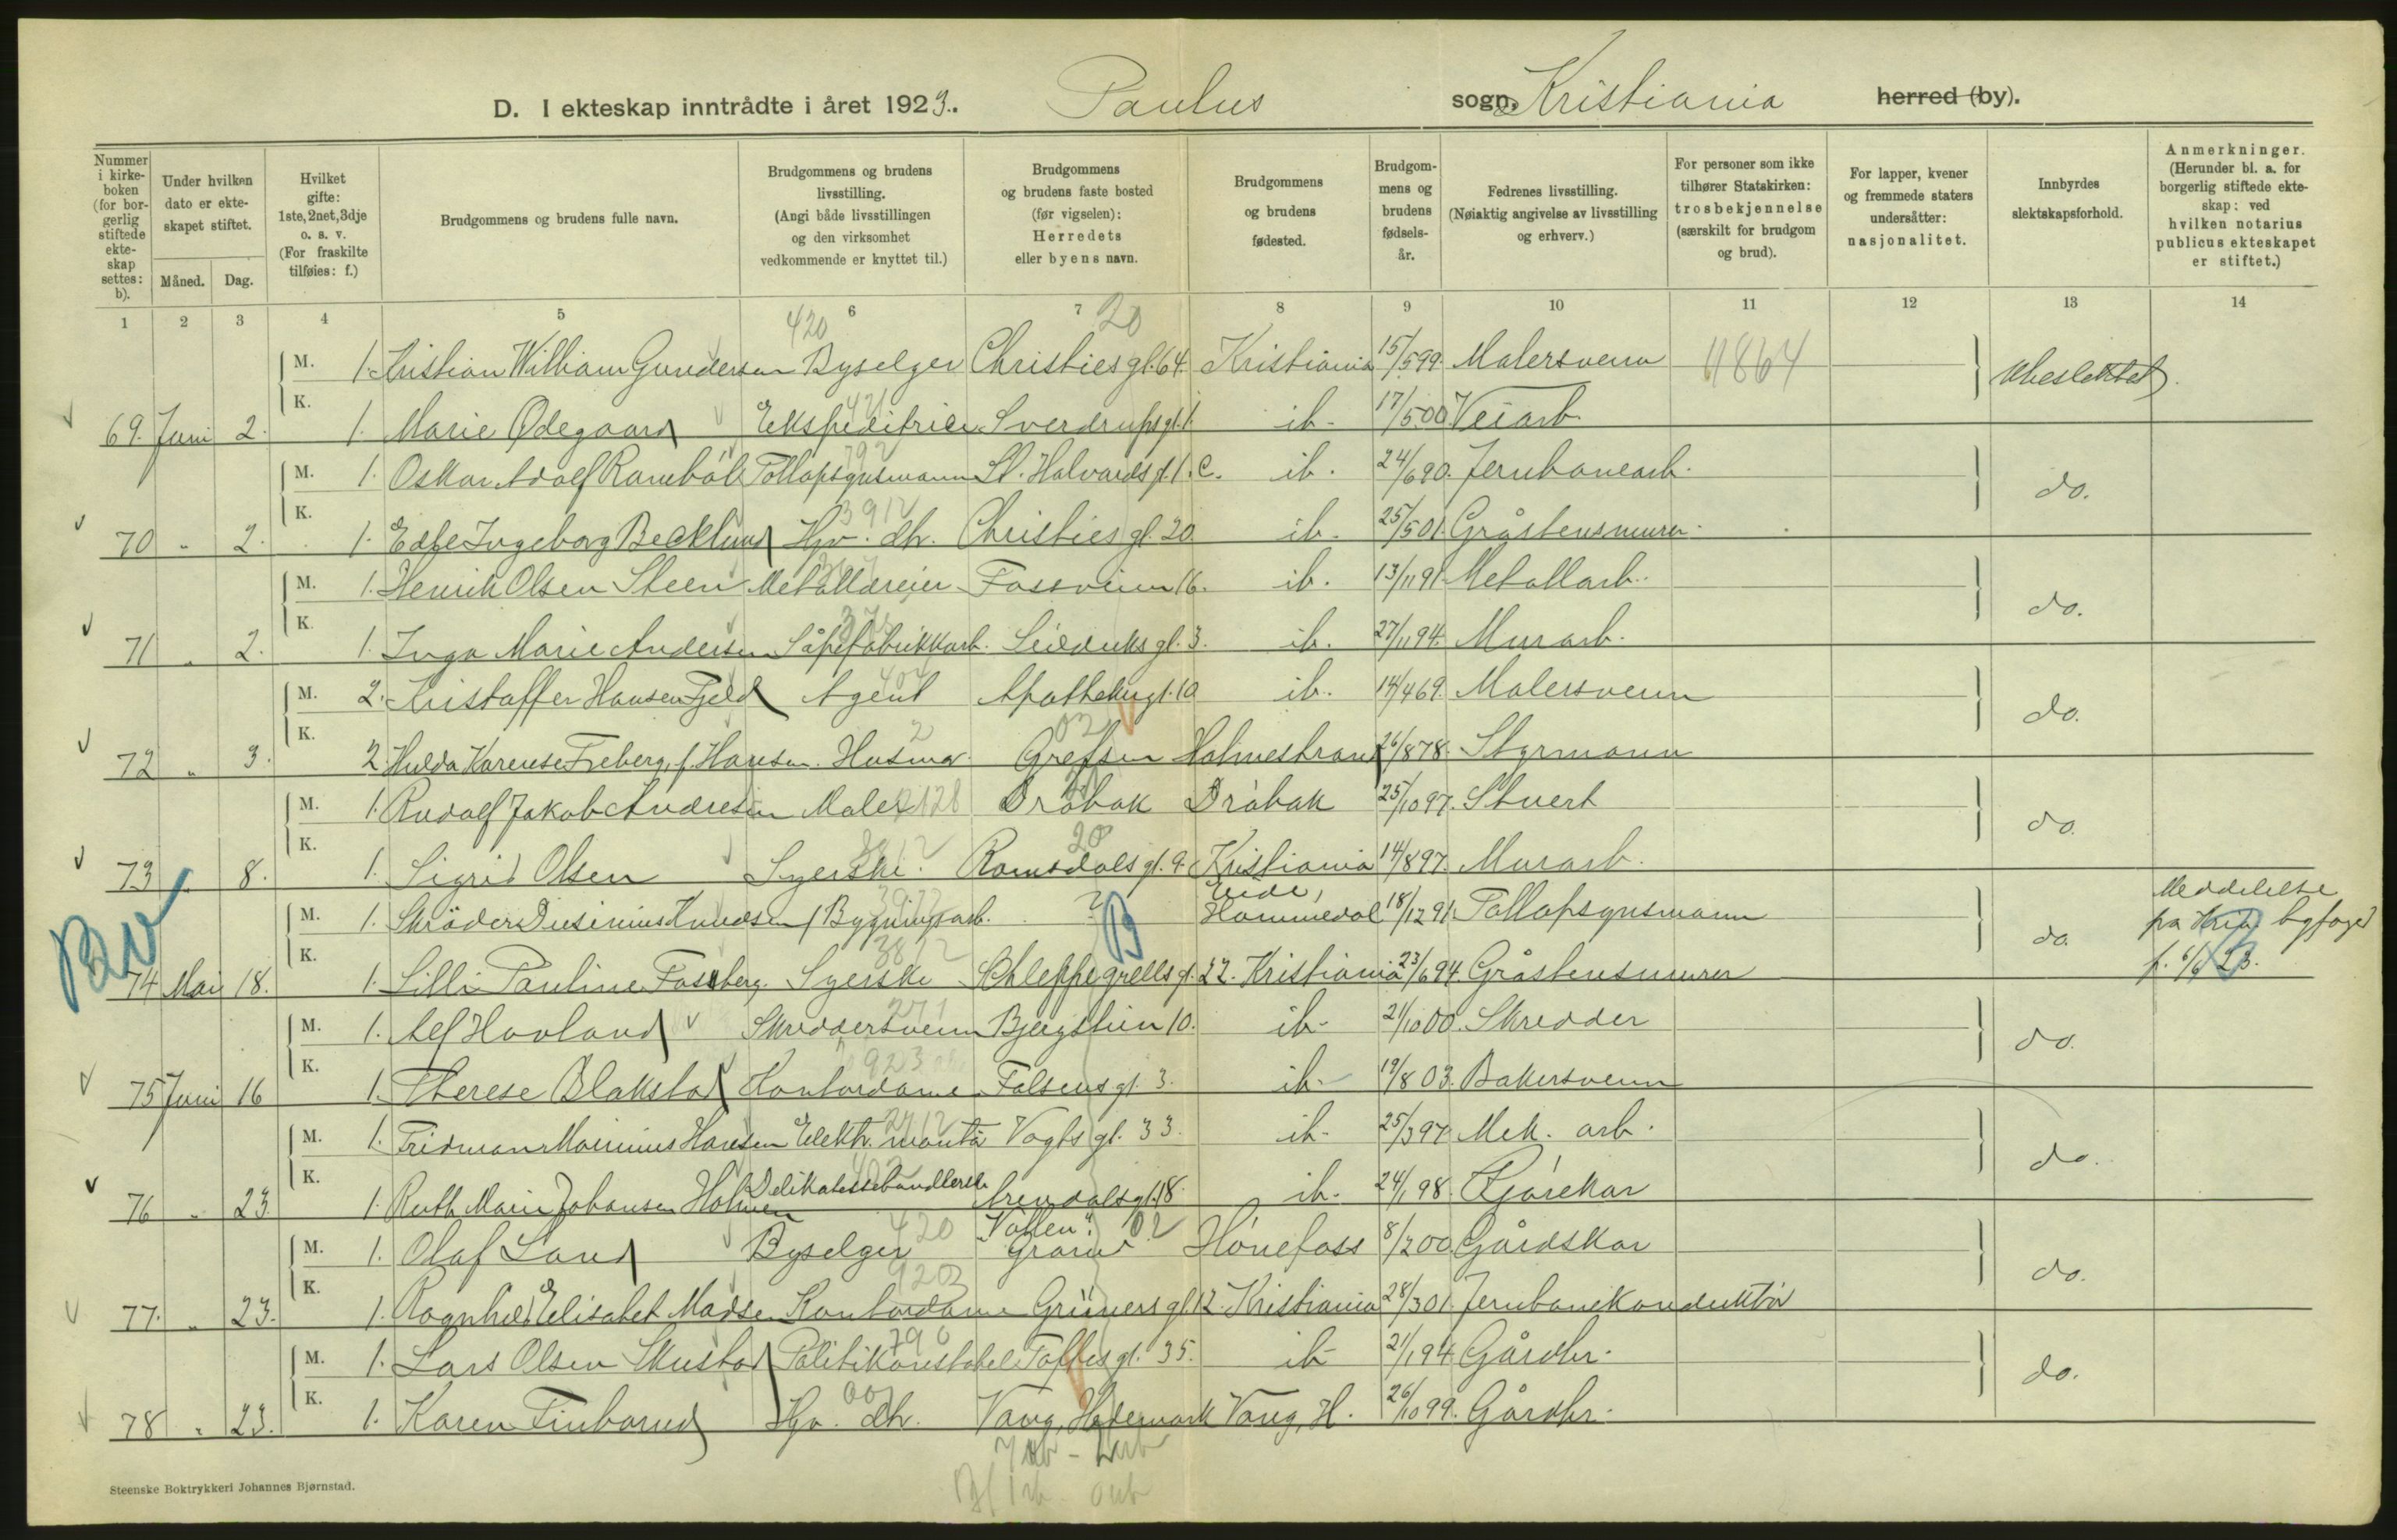 D. I ekteskap inntrådte i året 1923. Paulus sogn, Kristiania herred (by).
Nummer i kirkeboken (for borgerlig stiftede ekteskap settes: b).
Under hvilken dato er ekteskapet stiftet.
Måned. Dag.
Hvilket gifte: 1ste, 2net, 3dje o. s. v. (For fraskilte tilføies: f.)
Brudgommens og brudens fulle navn.
Brudgommens og brudens livsstilling. (Angi både livsstillingen og den virksomhet vedkommende er knyttet til.)
Brudgommens og brudens faste bosted (før vigselen): Herredets eller byens navn.
Brudgommens og brudens fødested.
Brudgommens og brudens fødselsår.
Fedrenes livsstilling. (Nøiaktig angivelse av livsstilling og erhverv.)
For personer som ikke tilhører Statskirken: trosbekjennelse (særskilt for brudgom og brud).
For lapper, kvener og fremmede staters undersåtter: nasjonalitet.
Innbyrdes slektskapsforhold.
Anmerkninger. (Herunder bl. a. for borgerlig stiftede ekteskap: ved hvilken notarius publicus ekteskapet er stiftet.)
1 2 3 4 5 6 7 8 9 10 11 12 13 14
420 20
M. 1. Kristian William Gundersen Byselger Christies gt. 64. Kristiania 15/5 99 Malersvenn 11864 Ubeslektet.
69. Juni 2. K. 1. Marie Ødegaard Ekspeditrice Sverdrups gt. 1. ib. 17/5 00 Veiarb.
M. 1. Oskar Adolf Rameböl Tollopsynsmann St. Halvards gt. 1. c. ib. 24/6 90. Jernbanearb. do.
70 " 2. K. 1. Edle Ingeborg Becklund Hjv. dh. Christies gt. 20 ib. 25/5 01. Gråstensmurer.
M. 1. Henrik Olsen Steen Metalldreier Fossveien 16. ib. 13/11 91 Metallarb. do.
71 " 2. K. 1. Inga Marie Andersen Såpefabrikkarb. Seilduks gt. 3. ib. 27/11 94. Murarb.
M. 2. Kristoffer Hansen Fjeld Agent Apothekergt. 10 ib. 14/4 69. Malersvenn do.
72 " 3. K. 2. Hulda Karense Freberg, f. Hansen. Husmor. Grefsen Holmestrand 26/8 78. Styrmann
M. 1. Rudolf Jakob Andresen Maler Drøbak Drøbak 25/10 97. Stuert do.
73 " 8. K. 1. Sigrid Olsen Syerske. Romsdals gt. 9. Kristiania 14/8 97. Murarb.
M. 1. Skrøder Dusinius Knudsen Bygningsarb. ? Eide, Hommedal 18/12 91. Tollopsynsmann do. Meddelelse fra Kria byfoged f. 6/6 23.
74 Mai 18. K. 1. Lilli Pauline Fossberg. Syerske Schleppegrells gt. 22. Kristiania 23/6 94. Gråstensmurer
M. 1. Alf Hovland Skreddersvenn Bjergstien 10. ib. 21/10 00. Skredder do.
75 Juni 16 K. 1. Therese Blakstad Kontordame Falsens gt. 3. ib. 19/8 03. Bakersvenn
M. 1. Fridman Marinius Hansen Elektr. montør Vogts gt. 33. ib. 25/3 97. Mek. arb. do.
76 " 23. K. 1. Ruth Marie Johansen Holmen Delikatessehandlerske Arendalsgt. 18. ib. 24/1 98. Kjørekar
M. 1. Olaf Land Byselger "Vollen" Gran Hönefoss 8/2 00. Gårdskar do.
77. " 23. K. 1. Ragnhild Elisabet Madsen Kontordame Grüners gt. 12. Kristiania 28/3 01. Jernbanekonduktör
M. 1. Lars Olsen Skustad Politikonstabel Toftes gt. 35. ib. 21/1 94 Gårdbr. do.
78 " 23. K. 1. Karen Finborud Hjv. dh. Vang, Hedemark Vang, H. 26/10 99. Gårdbr.
Steenske Boktrykkeri Johannes Bjørnstad.